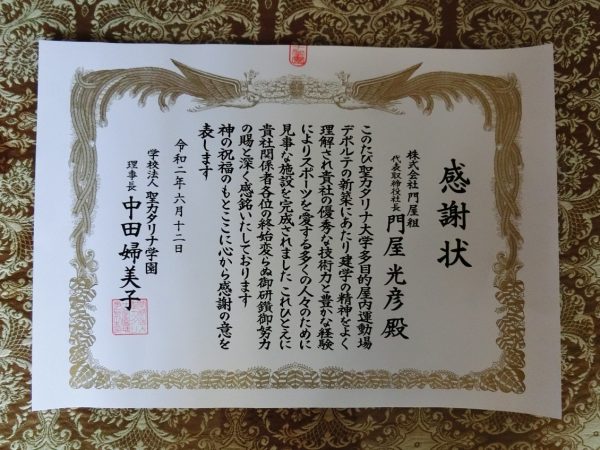 感謝状
株式会社 門屋組
代表取締役社長 門屋光彦 殿
このたび聖カタリナ大学多目的屋内運動場
デポルテの新築にあたり建学の精神をよく
理解され貴社の優秀な技術力と豊かな経験
によりスポーツを愛する多くの人々のために
見事な施設を完成されました これひとえに
貴社関係者各位の終始変らぬ御研鑽御努力
の賜と深く感銘いたしております
神の祝福のもとここに心から感謝の意を
表します
令和二年六月十二日
学校法人 聖カタリナ学園
理事長 中田婦美子